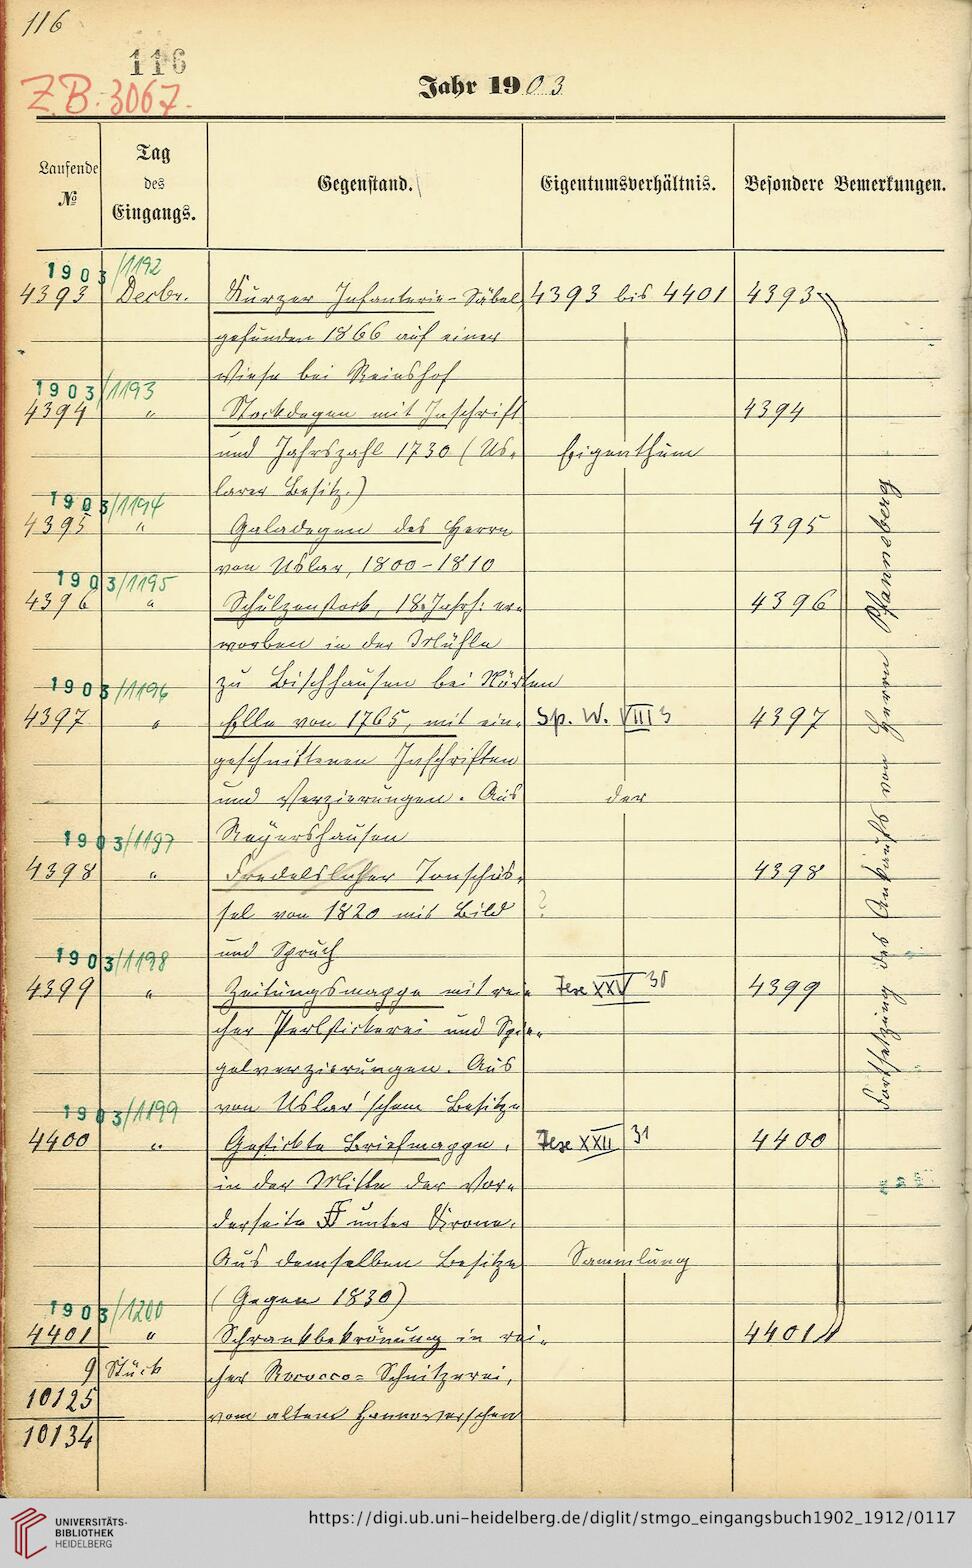 116
116
Z.B. 3067.
Jahr 1903
Laufende
№
Tag
des
Eingangs.
Gegenstand.
Eigentumsverhältnis.
Besondere Bemerkungen.
1903/1192
4393 Decbr. Kurzer Infanterie-Säbel, 4393 bis 4401 4393
gefunden 1866 auf einer
Wiese bei Reinshof
1903/1193
4394 " Stockdegen mit Inschrift 4394
und Jahrszahl 1730 (Us- Eigenthum
larer Besitz.)
1903/1194
4395 " Galadegen des Herrn 4395
von Uslar, 1800-1810
1903/1195
4396 " Schulzenstock, 18. Jahrh: er- 4396
worben in der Mühle
zu Bischhausen bei Nörten
1903/1196
4397 " Elle von 1765, mit ein- Sp. W. VIII 3 4397
geschnittenen Inschriften
und Verzierungen. Aus der
Reyershausen
1903/1197
4398 " Fredelsloher Tonschüs- 4398
sel von 1820 mit Bild ?
und Spruch
1903/1198
4399 " Zeitungsmappe mit rei- XXV 30 4399
cher Perlstickerei und Spie-
gelverzierungen. Aus
von Uslar'schem Besitze
1903/1199
4400 " Gestickte Briefmappe, XXII 31 4400
in der Mitte der Vor-
derseite unter Krone.
Aus demselben Besitze Sammlung
(Gegen 1830)
1903/1200
4401 " Schrankbekrönung in rei- 4401
9 Stück cher Rococco-Schnitzerei,
10125 vom alten Hannoverschen
10134
Fortsetzung des Ankaufs von Herrn Pfanneberg
UNIVERSITÄTS-
BIBLIOTHEK
HEIDELBERG
https://digi.ub.uni-heidelberg.de/diglit/stmgo_eingangsbuch1902_1912/0117